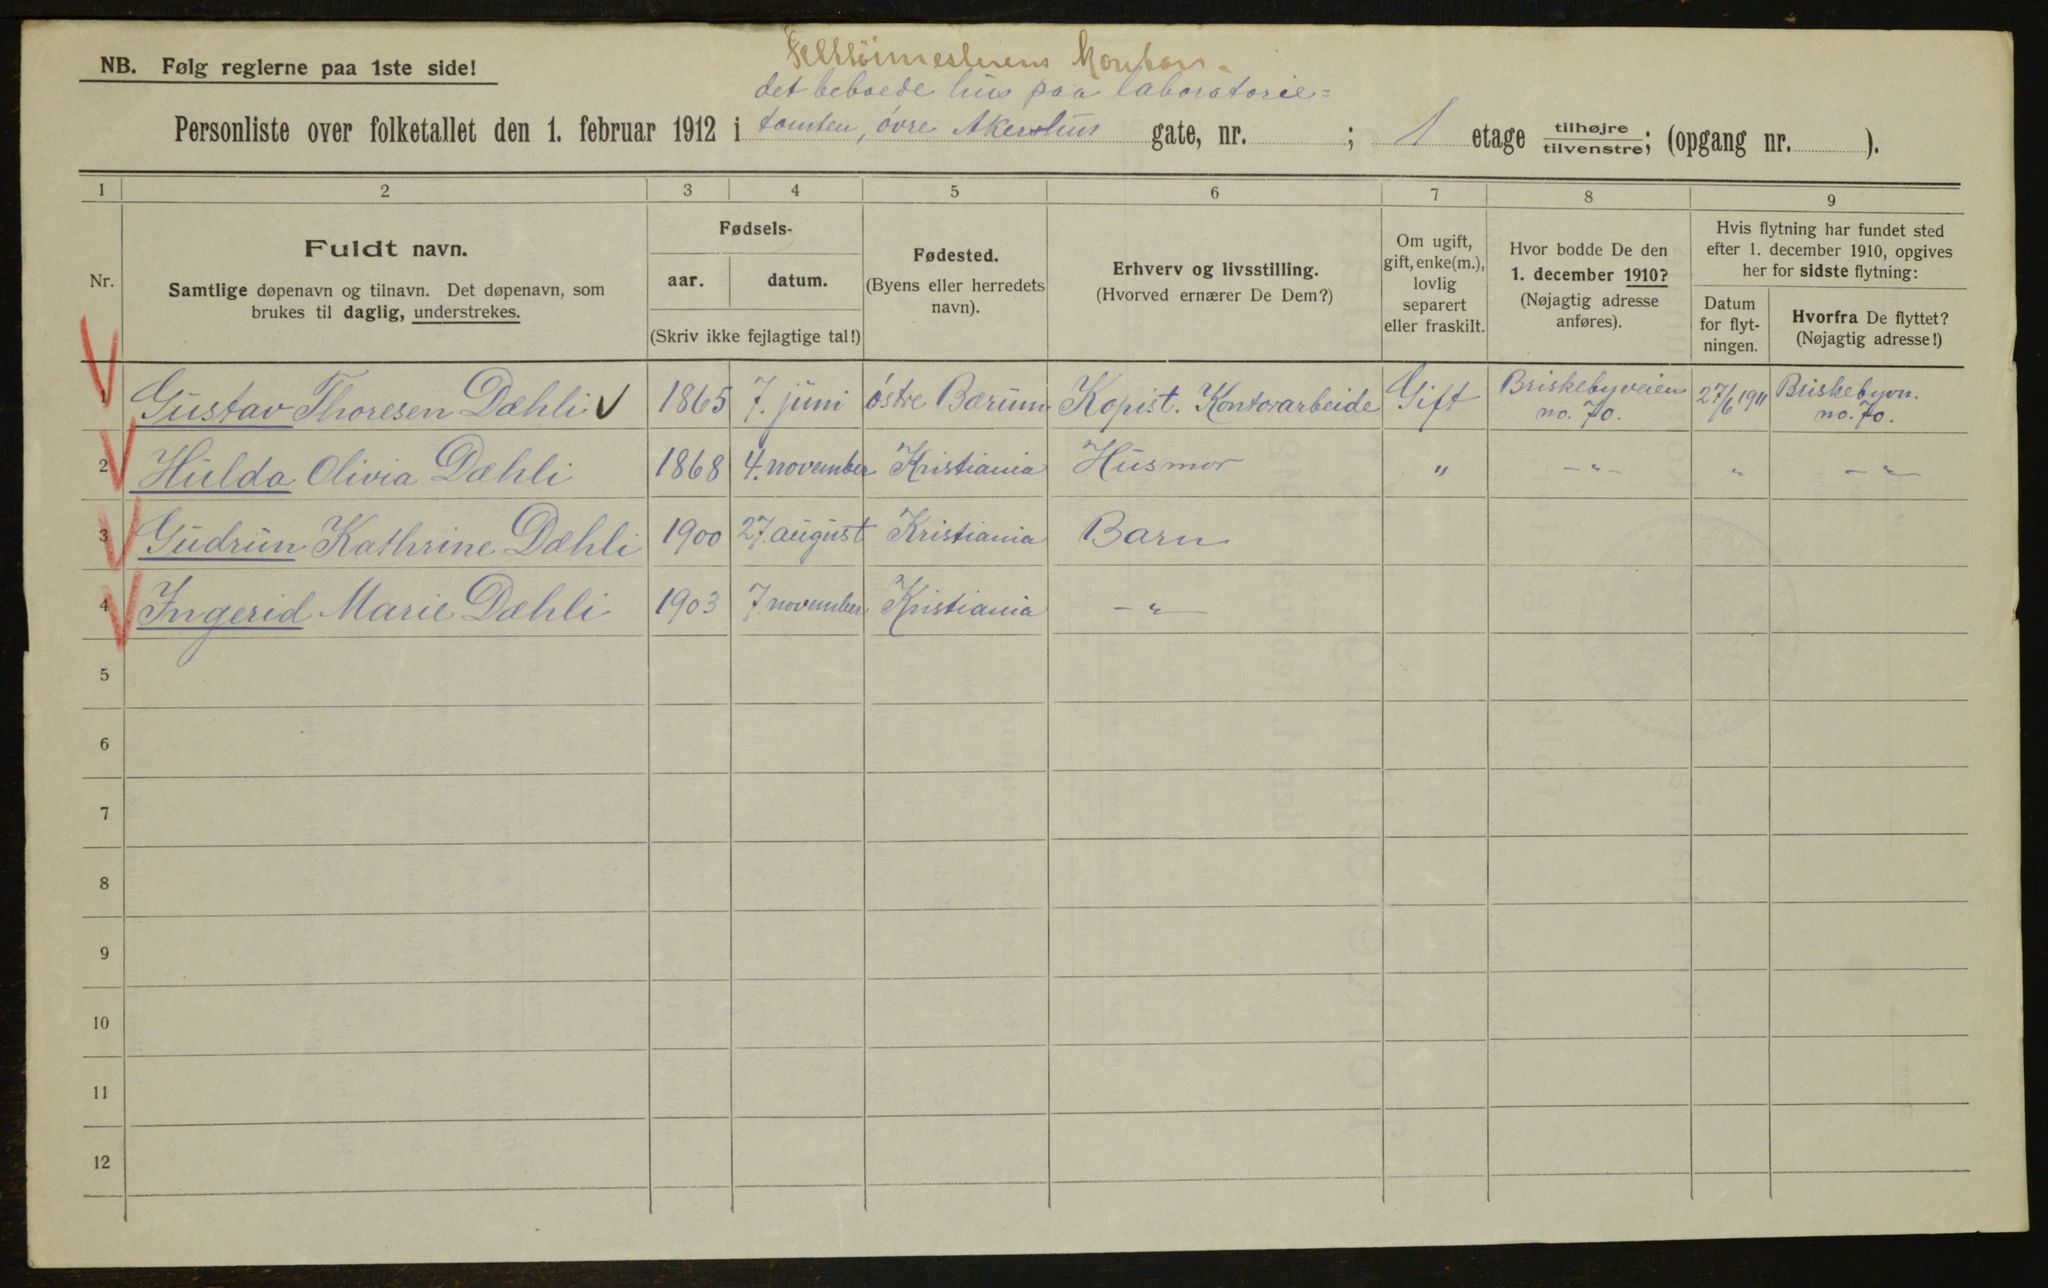 NB. Følg reglerne paa 1ste side!
det beboede hus paa laboratorie=
Personliste over folketallet den 1. februar 1912 i tomten, øvre Akershus gate, nr. ; 1 etage tilhøjre/tilvenstre; (opgang nr. ).
1 2 3 4 5 6 7 8 9
Nr.
Fuldt navn.
Samtlige døpenavn og tilnavn. Det døpenavn, som
brukes til daglig, understrekes.
Fødsels-
aar. datum.
(Skriv ikke fejlagtige tal!)
Fødested.
(Byens eller herredets
navn).
Erhverv og livsstilling.
(Hvorved ernærer De Dem?)
Om ugift,
gift, enke(m.),
lovlig
separert
eller fraskilt.
Hvor bodde De den
1. december 1910?
(Nøjagtig adresse
anføres).
Hvis flytning har fundet sted
efter 1. december 1910, opgives
her for sidste flytning:
Datum
for flyt-
ningen.
Hvorfra De flyttet?
(Nøjagtig adresse!)
1 Gustav Thoresen Dæhli √ 1865 7. juni østre Bærum Kopist. Kontorarbeide Gift Briskebyveien no. 70. 27/6 1911 Briskebyvn. no. 70.
2 Hulda Olivia Dæhli 1868 4. november Kristiania Husmor " -"- " -"
3 Gudrun Kathrine Dæhli 1900 27. august Kristiania Barn
4 Ingerid Marie Dæhli 1903 7. november Kristiania -"-
5
6
7
8
9
10
11
12